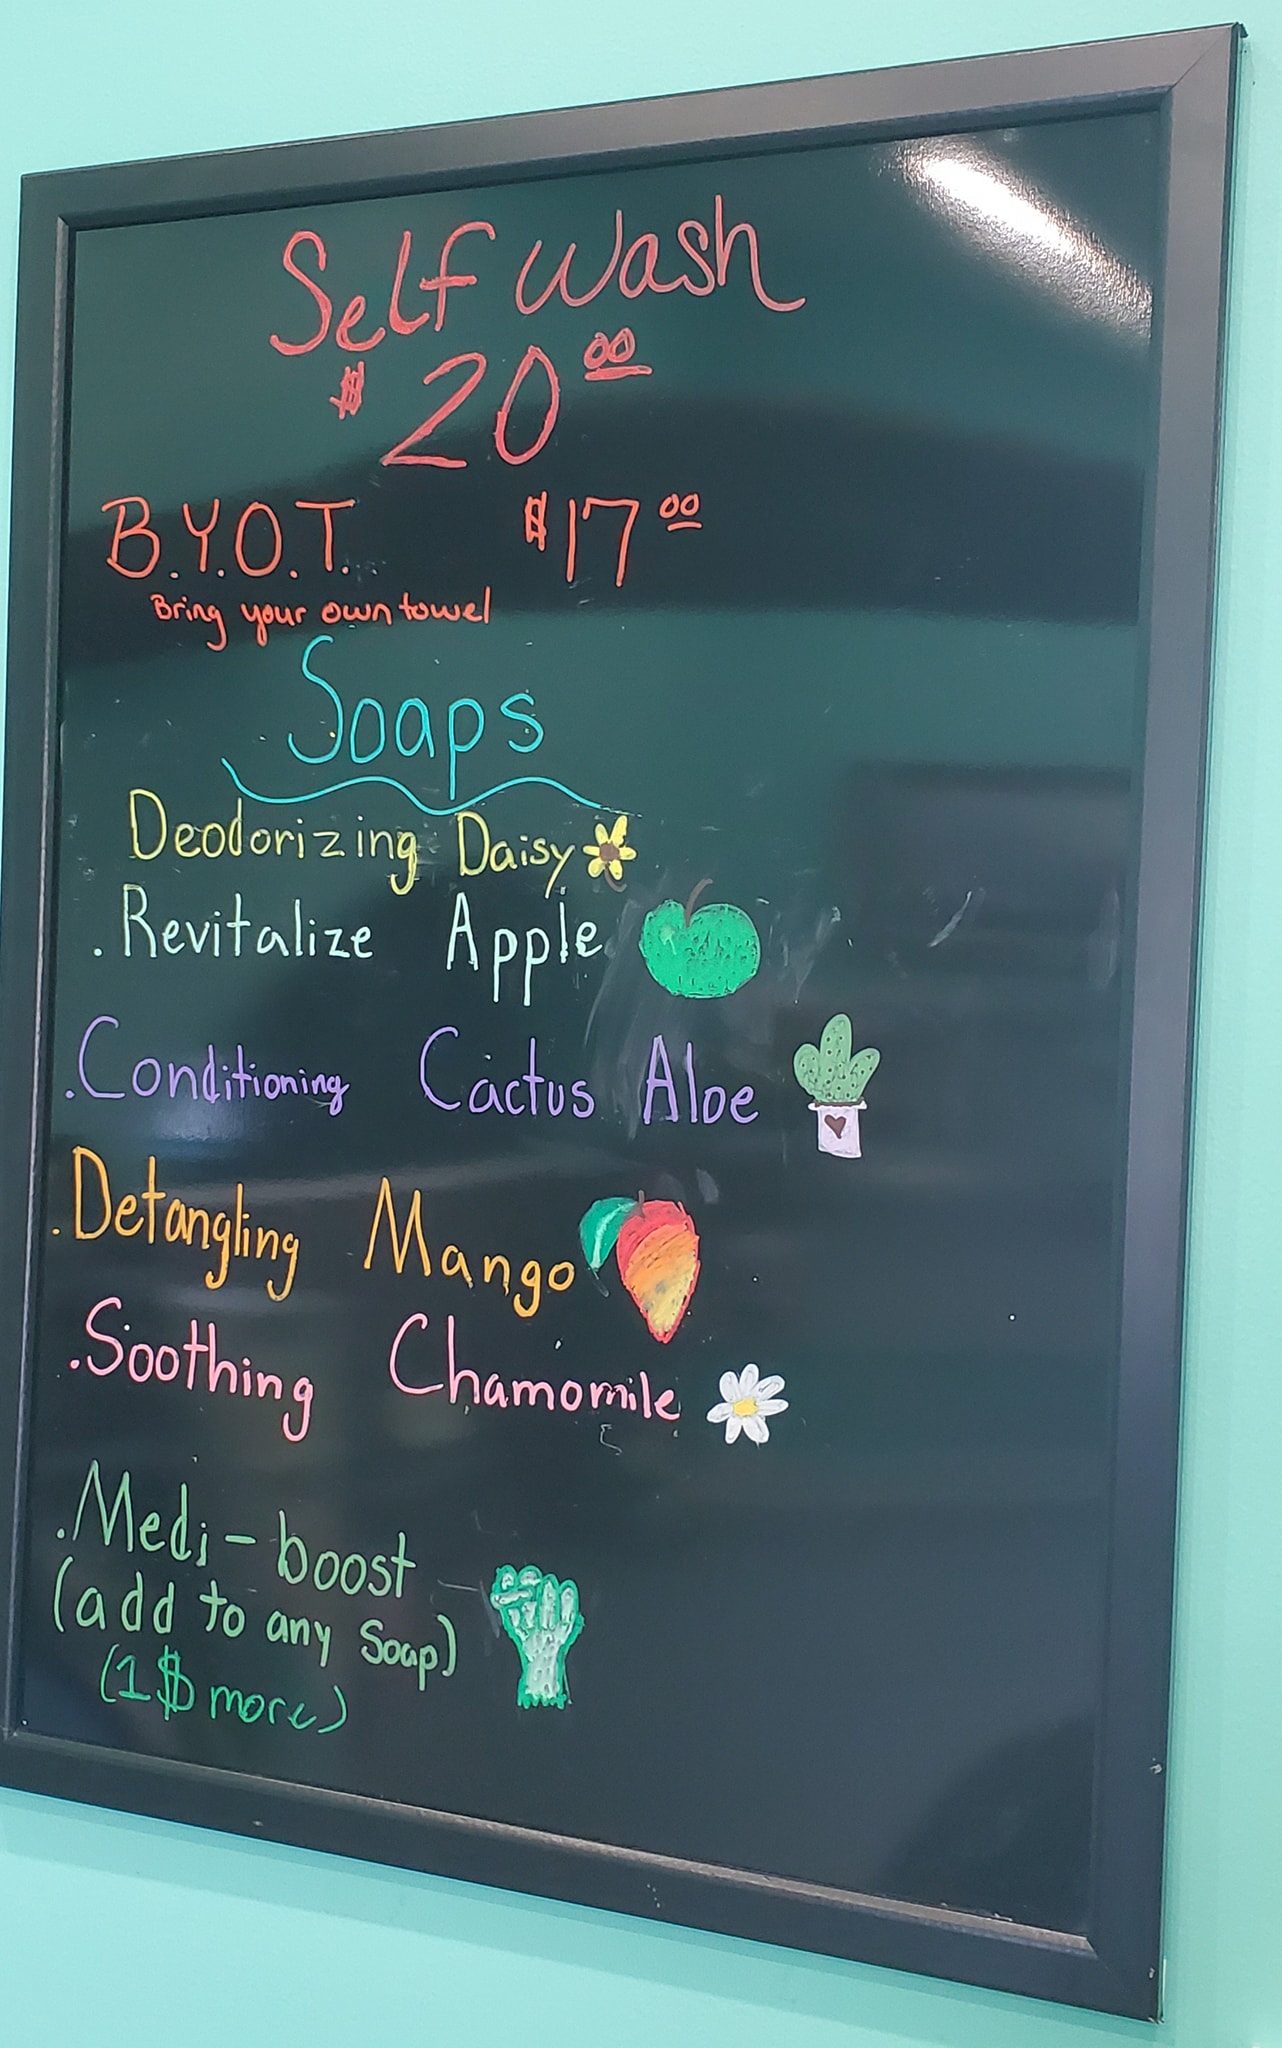 Self Wash
$20.00
B.Y.O.T. $17.00
Bring your own towel
Soaps
Deodorizing Daisy
. Revitalize Apple
. Conditioning Cactus Aloe
. Detangling Mango
. Soothing Chamomile
. Medi-boost
(add to any soap)
(1$ more)